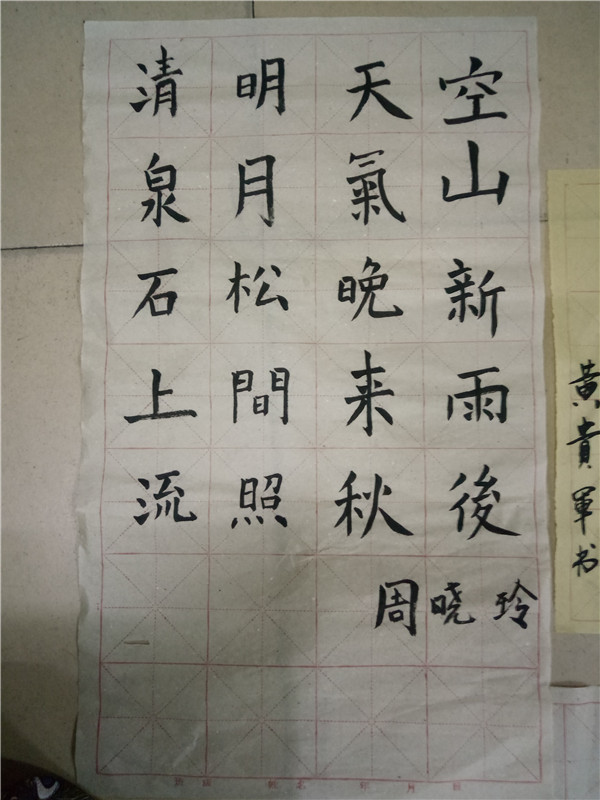 空山新雨後
天氣晚来秋
明月松間照
清泉石上流
周晓玲
黃貴軍书